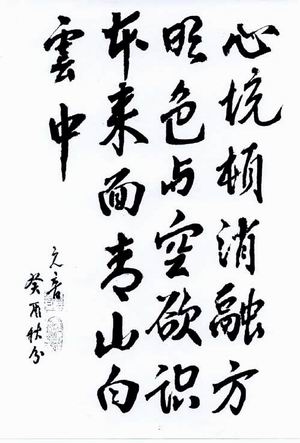 心境顿消融方
明色与空欲识
本来面青山白
雲中
元音
癸酉秋分